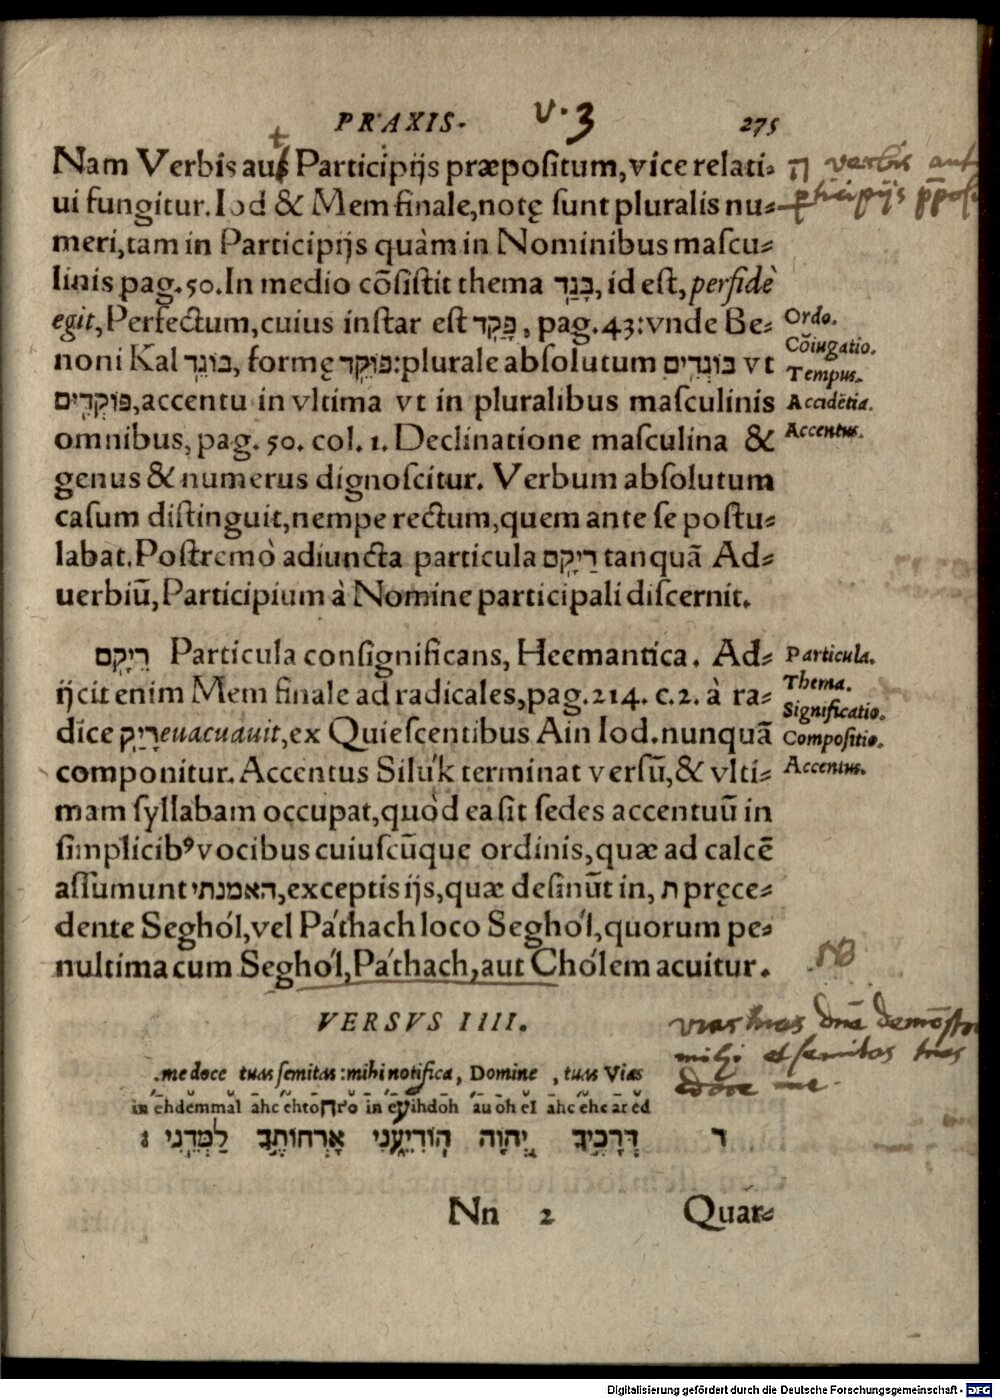 PRAXIS. v. 3 275
Nam Verbis aut Participijs præpositum, vice relati-
ui fungitur. Iod & Mem finale, notę sunt pluralis nu-
meri, tam in Participijs quàm in Nominibus mascu-
linis pag. 50. In medio cõsistit thema בָּגַד, id est, perfidè
egit, Perfectum, cuius instar est פָּקַד, pag. 43: vnde Be-
noni Kal בּוֹגֵד, formę פּוֹקֵד: plurale absolutum בּוֹגְדִים vt
פּוֹקְדִים, accentu in vltima vt in pluralibus masculinis
omnibus, pag. 50. col. 1. Declinatione masculina &
genus & numerus dignoscitur. Verbum absolutum
casum distinguit, nempe rectum, quem ante se postu-
labat. Postremò adiuncta particula רֵיקָם tanquã Ad-
uerbiũ, Participium à Nomine participali discernit.
ה verbis aut
Ordo.
Cõiugatio.
Tempus.
Accidẽtia.
Accentus.
רֵיקָם Particula consignificans, Heemantica. Ad-
ijcit enim Mem finale ad radicales, pag. 214. c. 2. à ra-
dice רִיק euacuauit, ex Quiescentibus Ain Iod. nunquã
componitur. Accentus Silúk terminat versũ, & vlti-
mam syllabam occupat, quòd ea sit sedes accentuũ in
simplicibꝰ vocibus cuiuscũque ordinis, quæ ad calcẽ
assumunt האמנתי, exceptis ijs, quæ desinũt in, ת pręce-
dente Seghól, vel Páthach loco Seghól, quorum pe-
nultima cum Seghól, Páthach, aut Chólem acuitur.
Particula.
Thema.
Significatio.
Compositio.
Accentus.
NB
VERSVS IIII.
vias tuas dñe demõstra
mihi et semitas tuas
edoce me.
.me doce tuas semitas: mihi notifica, Domine , tuas Vias
ד דְּרָכֶיךָ יְהוָה הוֹדִיעֵנִי אֹרְחוֹתֶיךָ לַמְּדֵנִי :
Nn 2 Quar-
Digitalisierung gefördert durch die Deutsche Forschungsgemeinschaft - DFG